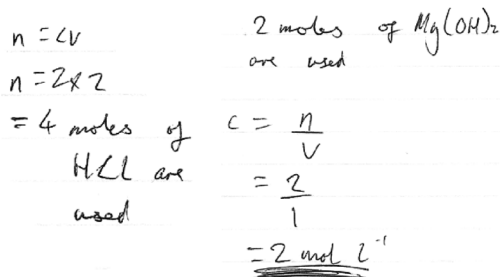 n = cv
n = 2×2
= 4 moles of
HCl are
used
2 moles of Mg(OH)₂
are used
c = n/v
= 2/1
= 2 mol l⁻¹